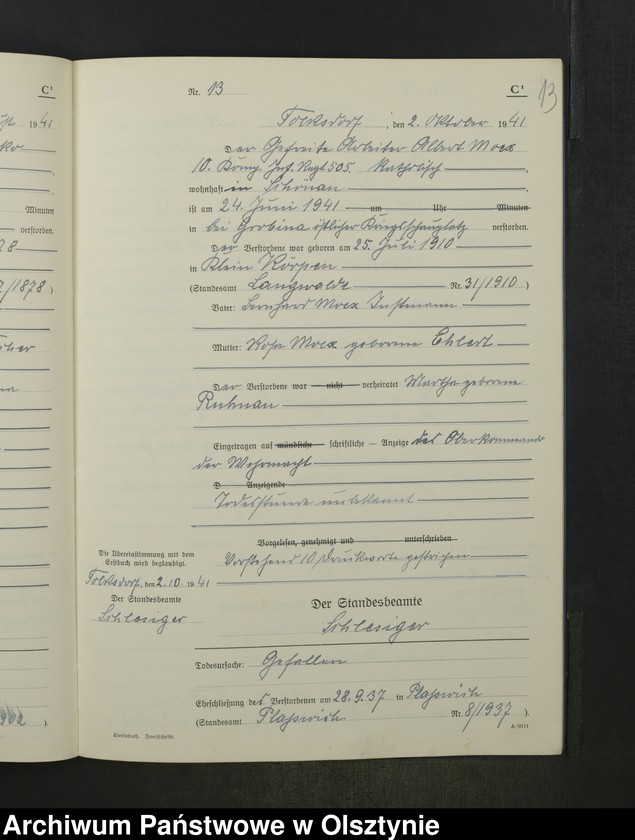 C¹
1941
Minuten
verstorben.
/1878)
).
Nr. 13
C¹
13
Tolksdorf, den 2. Oktober 1941
Der Gefreite Arbeiter Albert Moex
10. Komp. Inf. Regt 505. Katholisch
wohnhaft in Schönau
ist am 24. Juni 1941 um Uhr Minuten
in bei Grobina östlicher Kriegsschauplatz verstorben.
Der Verstorbene war geboren am 25. Juli 1910
in Klein Körpen
(Standesamt Langwalde Nr. 31/1910)
Vater: Bernhard Moex Instmann
Mutter: Rosa Moex geborene Ehlert
Der Verstorbene war nicht verheiratet Martha geborene
Ruhnau
Eingetragen auf mündliche – schriftliche – Anzeige des Oberkommando
der Wehrmacht
D Anzeigende
Todesstunde unbekannt
Vorgelesen, genehmigt und unterschrieben
Vorstehend 10 Druckworte gestrichen
Die Übereinstimmung mit dem
Erstbuch wird beglaubigt.
Tolksdorf, den 2.10.1941
Der Standesbeamte
Schlesiger
Der Standesbeamte
Schlesiger
Todesursache: Gefallen
Eheschließung des Verstorbenen am 28.9.37 in Plaßwich
(Standesamt Plaßwich Nr. 8/1937).
Sterbebuch. Zweitschrift.
Archiwum Państwowe w Olsztynie